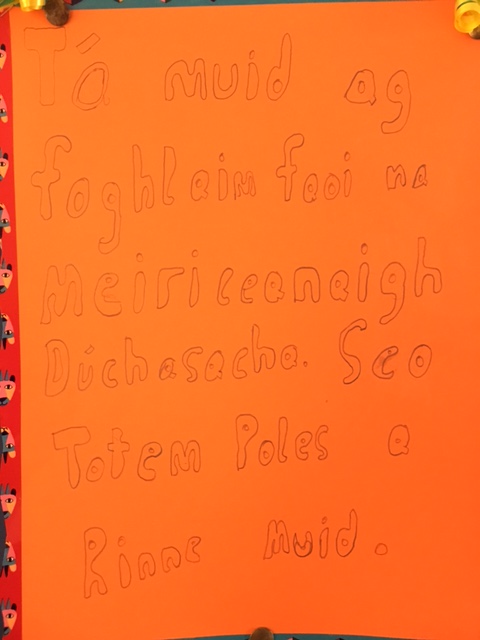 Tá muid ag
foghlaim faoi na
Meiriceanaigh
Dúchasacha. Seo
Totem Poles a
Rinne Muid.